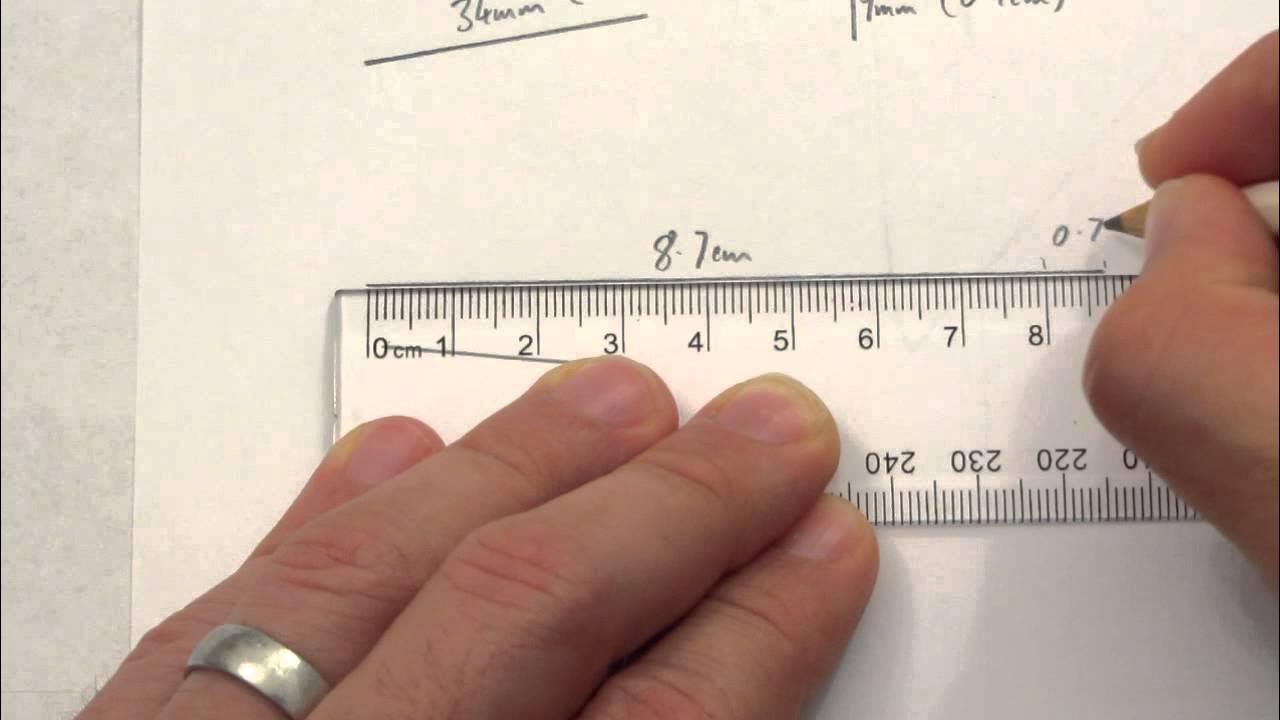 34mm (
9mm (0.9cm)
8.7cm
0.7
0 cm 1 2 3 4 5 6 7 8
240 230 220